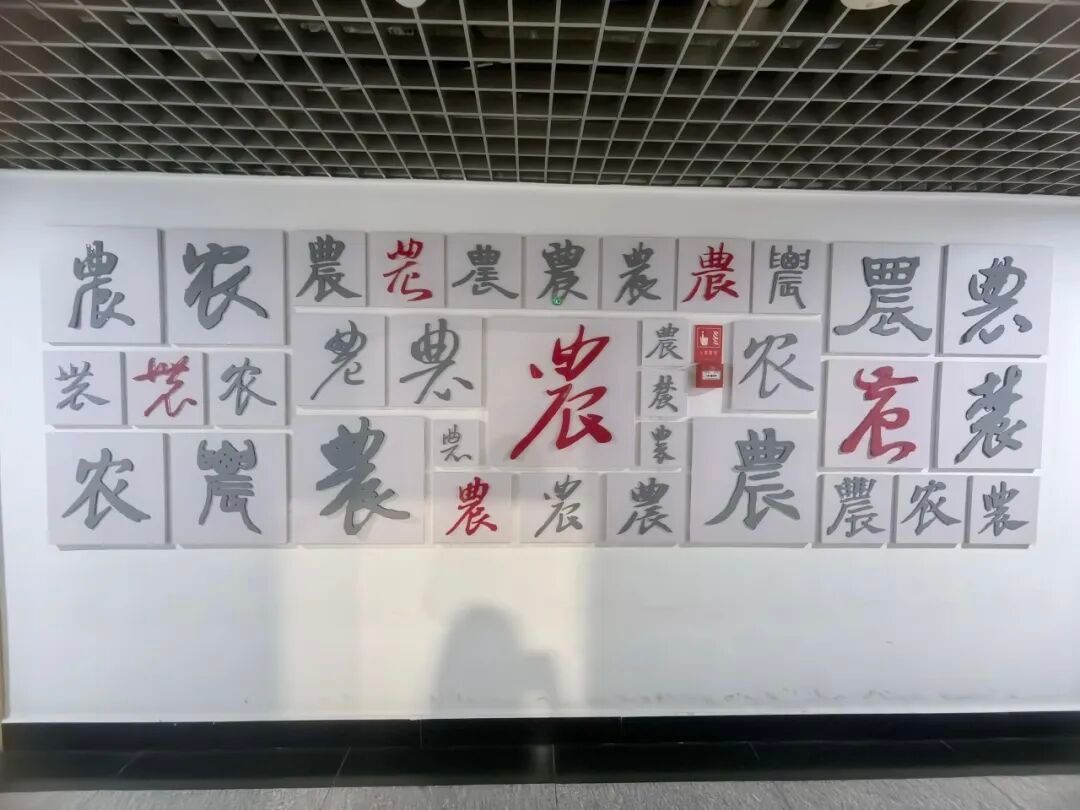 農农農農農農農農農農農
農農農農農農农
農農农農農
農農農農
农農農農農農農農农農